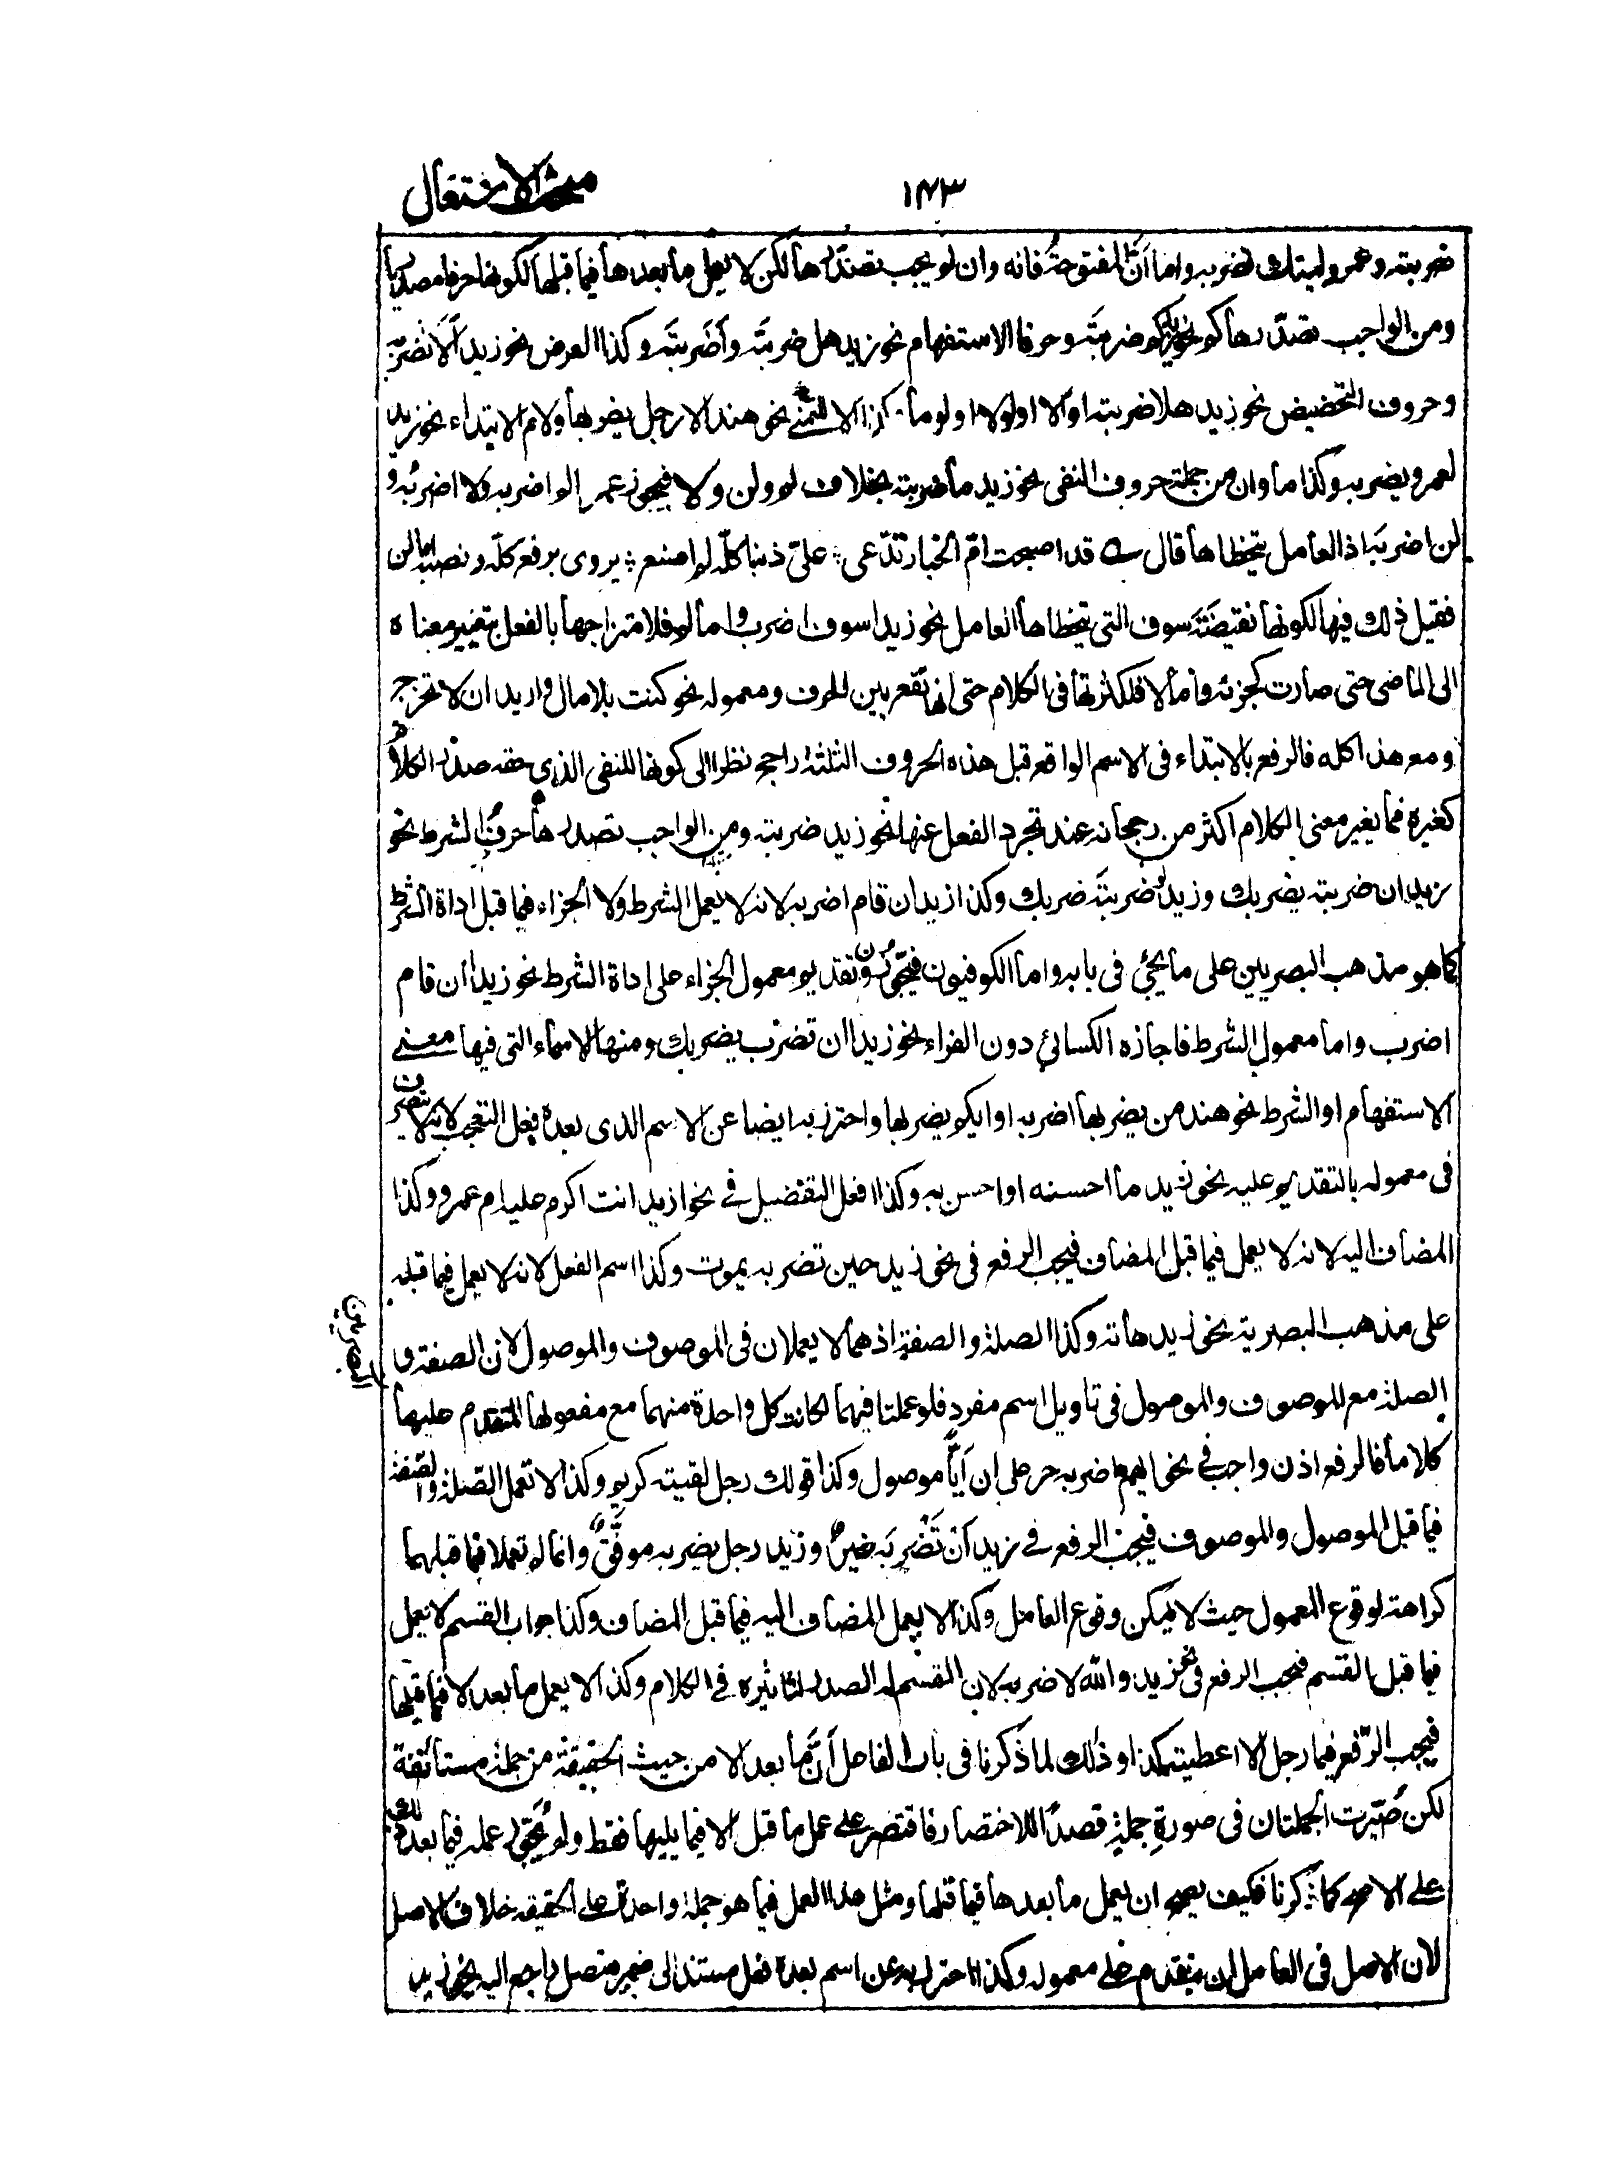 مبحث الاشتغال
١٤٣
ضربته وعمرو ليتك تضربه واما اَنَّ المفتوحة فانه وان لم يجب تصدّرها لكن لا يعمل ما بعدها فيما قبلها لكونها حرفا مصدريا
ومن الواجب تصدّرها كم نحو زيد كم ضربتَه وحرفا الاستفهام نحو زيد هل ضربتَه وأضَربتَه وكذا العرض نحو زيد اَلَا تضربُه
وحروف التحضيض نحو زيد هلا ضربته او الا او لولا او لوما وكذا الا للتمنے نحو هند الا رجل يضربها ولام الابتداء نحو زيد
لعمرو يضربه وكذا ما وان من جملة حروف النفى نحو زيد ما ضربته بخلاف لم ولن ولا فيجوز عمرا لم اضربه ولا اضربُه و
لن اضربَه اذ العامل يتخطاها قال قد اصبحت امّ الخيار تدّعى علىّ ذنبا كلّه لم اصنع يروى برفع كلّه ونصبه اما لن
فقيل ذلك فيها لكونها نقيضَةَ سوف التى يتخطاها العامل نحو زيدا سوف اضرب واما لم فلامتزاجها بالفعل بتغيير معناه
الى الماضى حتى صارت كجزئه واما لا فلكثرتها فى الكلام حتى انها تقع بين الحرف ومعموله نحو كنت بلا مال واريد ان لا تخرج
ومع هذا كله فالرفع بالابتداء فى الاسم الواقع قبل هذه الحروف الثلثة راجح نظرا الى كونها للنفى الذى حقه صدر الكلام
كغيره مما يغير معنى الكلام اكثر من رجحانه عند تجرد الفعل عنها نحو زيد ضربته ومن الواجب تصدرها حرفُ الشرط نحو
زيد ان ضربته يضربك وزيد لو ضربتَه ضربك وكذا زيد ان قام اضربه لانه لا يعمل الشرط ولا الجزاء فيما قبل اداة الشرط
كما هو مذهب البصريين على ما يجئ فى بابه واما الكوفيون فيجوّزون تقديم معمول الجزاء على اداة الشرط نحو زيدا ان قام
اضرب واما معمول الشرط فاجازه الكسائى دون الفراء نحو زيدا ان تضرب يضربك ومنها الاسماء التى فيها معنے
الاستفهام او الشرط نحو هند من يضربها اضربه او ايكم يضربها واحترز به ايضا عن الاسم الذى بعده فعل التعجب لانه لا يتصرف
فى معموله بالتقديم عليه نحو زيد ما احسنه او احسن به وكذا افعل التفضيل فے نحو ازيد انت اكرم عليه ام عمرو وكذا
المضاف اليه لانه لا يعمل فيما قبل المضاف فيجب الرفع فى نحو زيد حين تضربه يموت وكذا اسم الفعل لانه لا يعمل فيما قبله
على مذهب البصرية نحو زيد هاته وكذا الصلة والصفة اذ هما لا يعملان فى الموصوف والموصول لان الصفة و
البصريين
الصلة مع الموصوف والموصول فى تاويل اسم مفرد فلو عملتا فيهما لكانت كل واحدة منهما مع مفعولها المتقدم عليها
كلاما فالرفع اذن واجب فے نحو ايهم اضربه حر على ان اَيًّا موصول وكذا قولك رجل لقيته كريم وكذا لا تعمل الصّلة والصفة
فيما قبل الموصول والموصوف فيجب الرفع فے زيد اَنْ تَضْرِبَه خيرٌ وزيد رجل يضربه موفَّقٌ وانما لم تعملا فيما قبلهما
كراهة لوقوع المعمول حيث لا يمكن وقوع العامل وكذا لا يعمل المضاف اليه فيما قبل المضاف وكذا جواب القسم لا يعمل
فيما قبل القسم فيجب الرفع فى نحو زيد والله لا ضربه لان القسم له الصدر لتاثيره فے الكلام وكذا لا يعمل ما بعد الا فيما قبلها
فيجب الرّفع فيما رجل الا اعطيته كذا وذلك لما ذكرنا فى باب الفاعل اَنَّ ما بعد الا من حيث الحقيقة من جملة مستأنفة
لكن صُيّرت الجملتان فى صورةِ جملةٍ قصدًا للاختصار فاقتصر على عمل ما قبل الا فيما يليها فقط ولم يُجَوّز عمله فيما بعد ذلك
على الاصح كما ذكرنا فكيف يصح ان يعمل ما بعدها فيما قبلها ومثل هذا العمل فيما هو جملة واحدة على الحقيقه خلاف الاصل
لان الاصل فى العامل ان يتقدم على معموله وكذا احترز به عن اسم بعده فعل مسند الى ضمير متصل راجع اليه نحو زيد